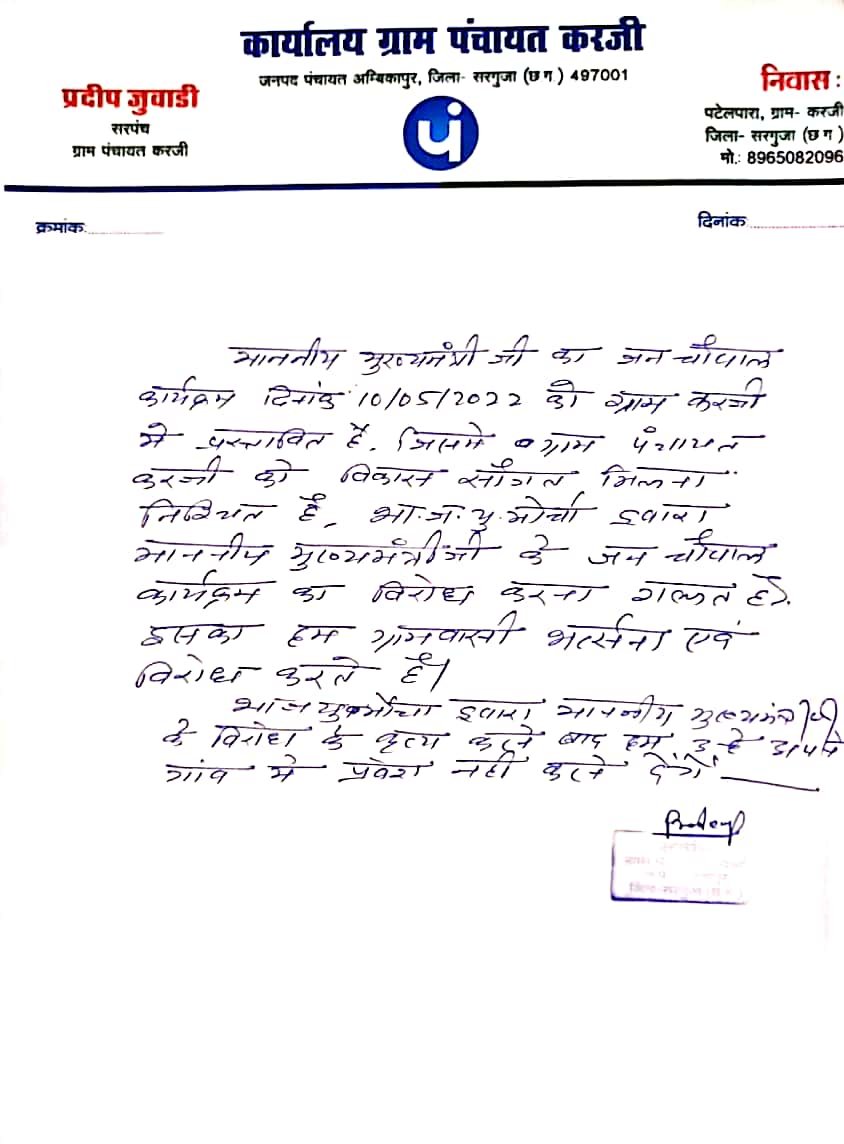 कार्यालय ग्राम पंचायत करजी
जनपद पंचायत अम्बिकापुर, जिला- सरगुजा (छ ग ) 497001
प्रदीप जुवाडी
सरपंच
ग्राम पंचायत करजी
पं
निवास :
पटेलपारा, ग्राम- करजी
जिला- सरगुजा (छ ग )
मो.: 8965082096
क्रमांक:
दिनांक
माननीय मुख्यमंत्री जी का जन चौपाल
कार्यक्रम दिनांक 10/05/2022 को ग्राम करजी
मे प्रस्तावित है, जिसमे ग्राम पंचायत
करजी को विकास सौगात मिलना
निश्चित है, भा.ज.यु.मोर्चा द्वारा
माननीय मुख्यमंत्री जी के जन चौपाल
कार्यक्रम का विरोध करना गलत है।
इसका हम ग्रामवासी भर्त्सना एवं
विरोध करते है।
भाजयुमोर्चा द्वारा माननीय मुख्यमंत्री जी
के विरोध के कृत्य बाद हम उन्हे अपने
गांव मे प्रवेश नही करने देगें
जिला-सरगुजा